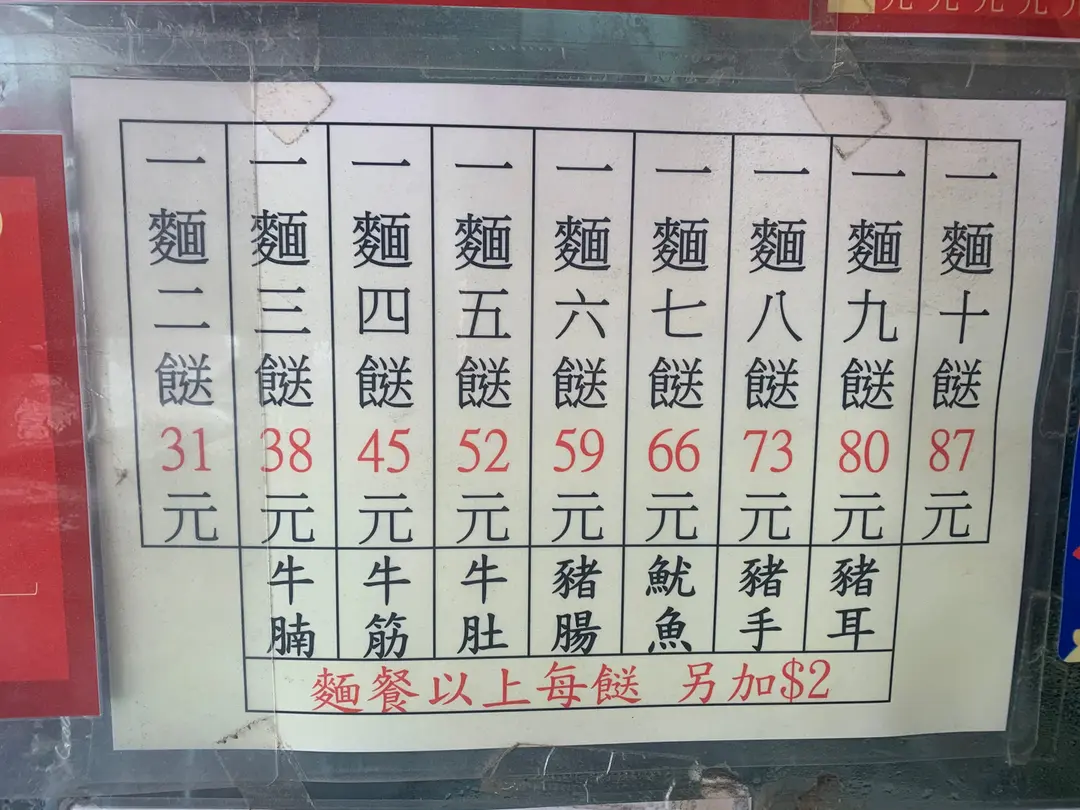 一麵二餸31元
一麵三餸38元
一麵四餸45元
一麵五餸52元
一麵六餸59元
一麵七餸66元
一麵八餸73元
一麵九餸80元
一麵十餸87元
牛腩
牛筋
牛肚
豬腸
魷魚
豬手
豬耳
麵餐以上每餸 另加$2